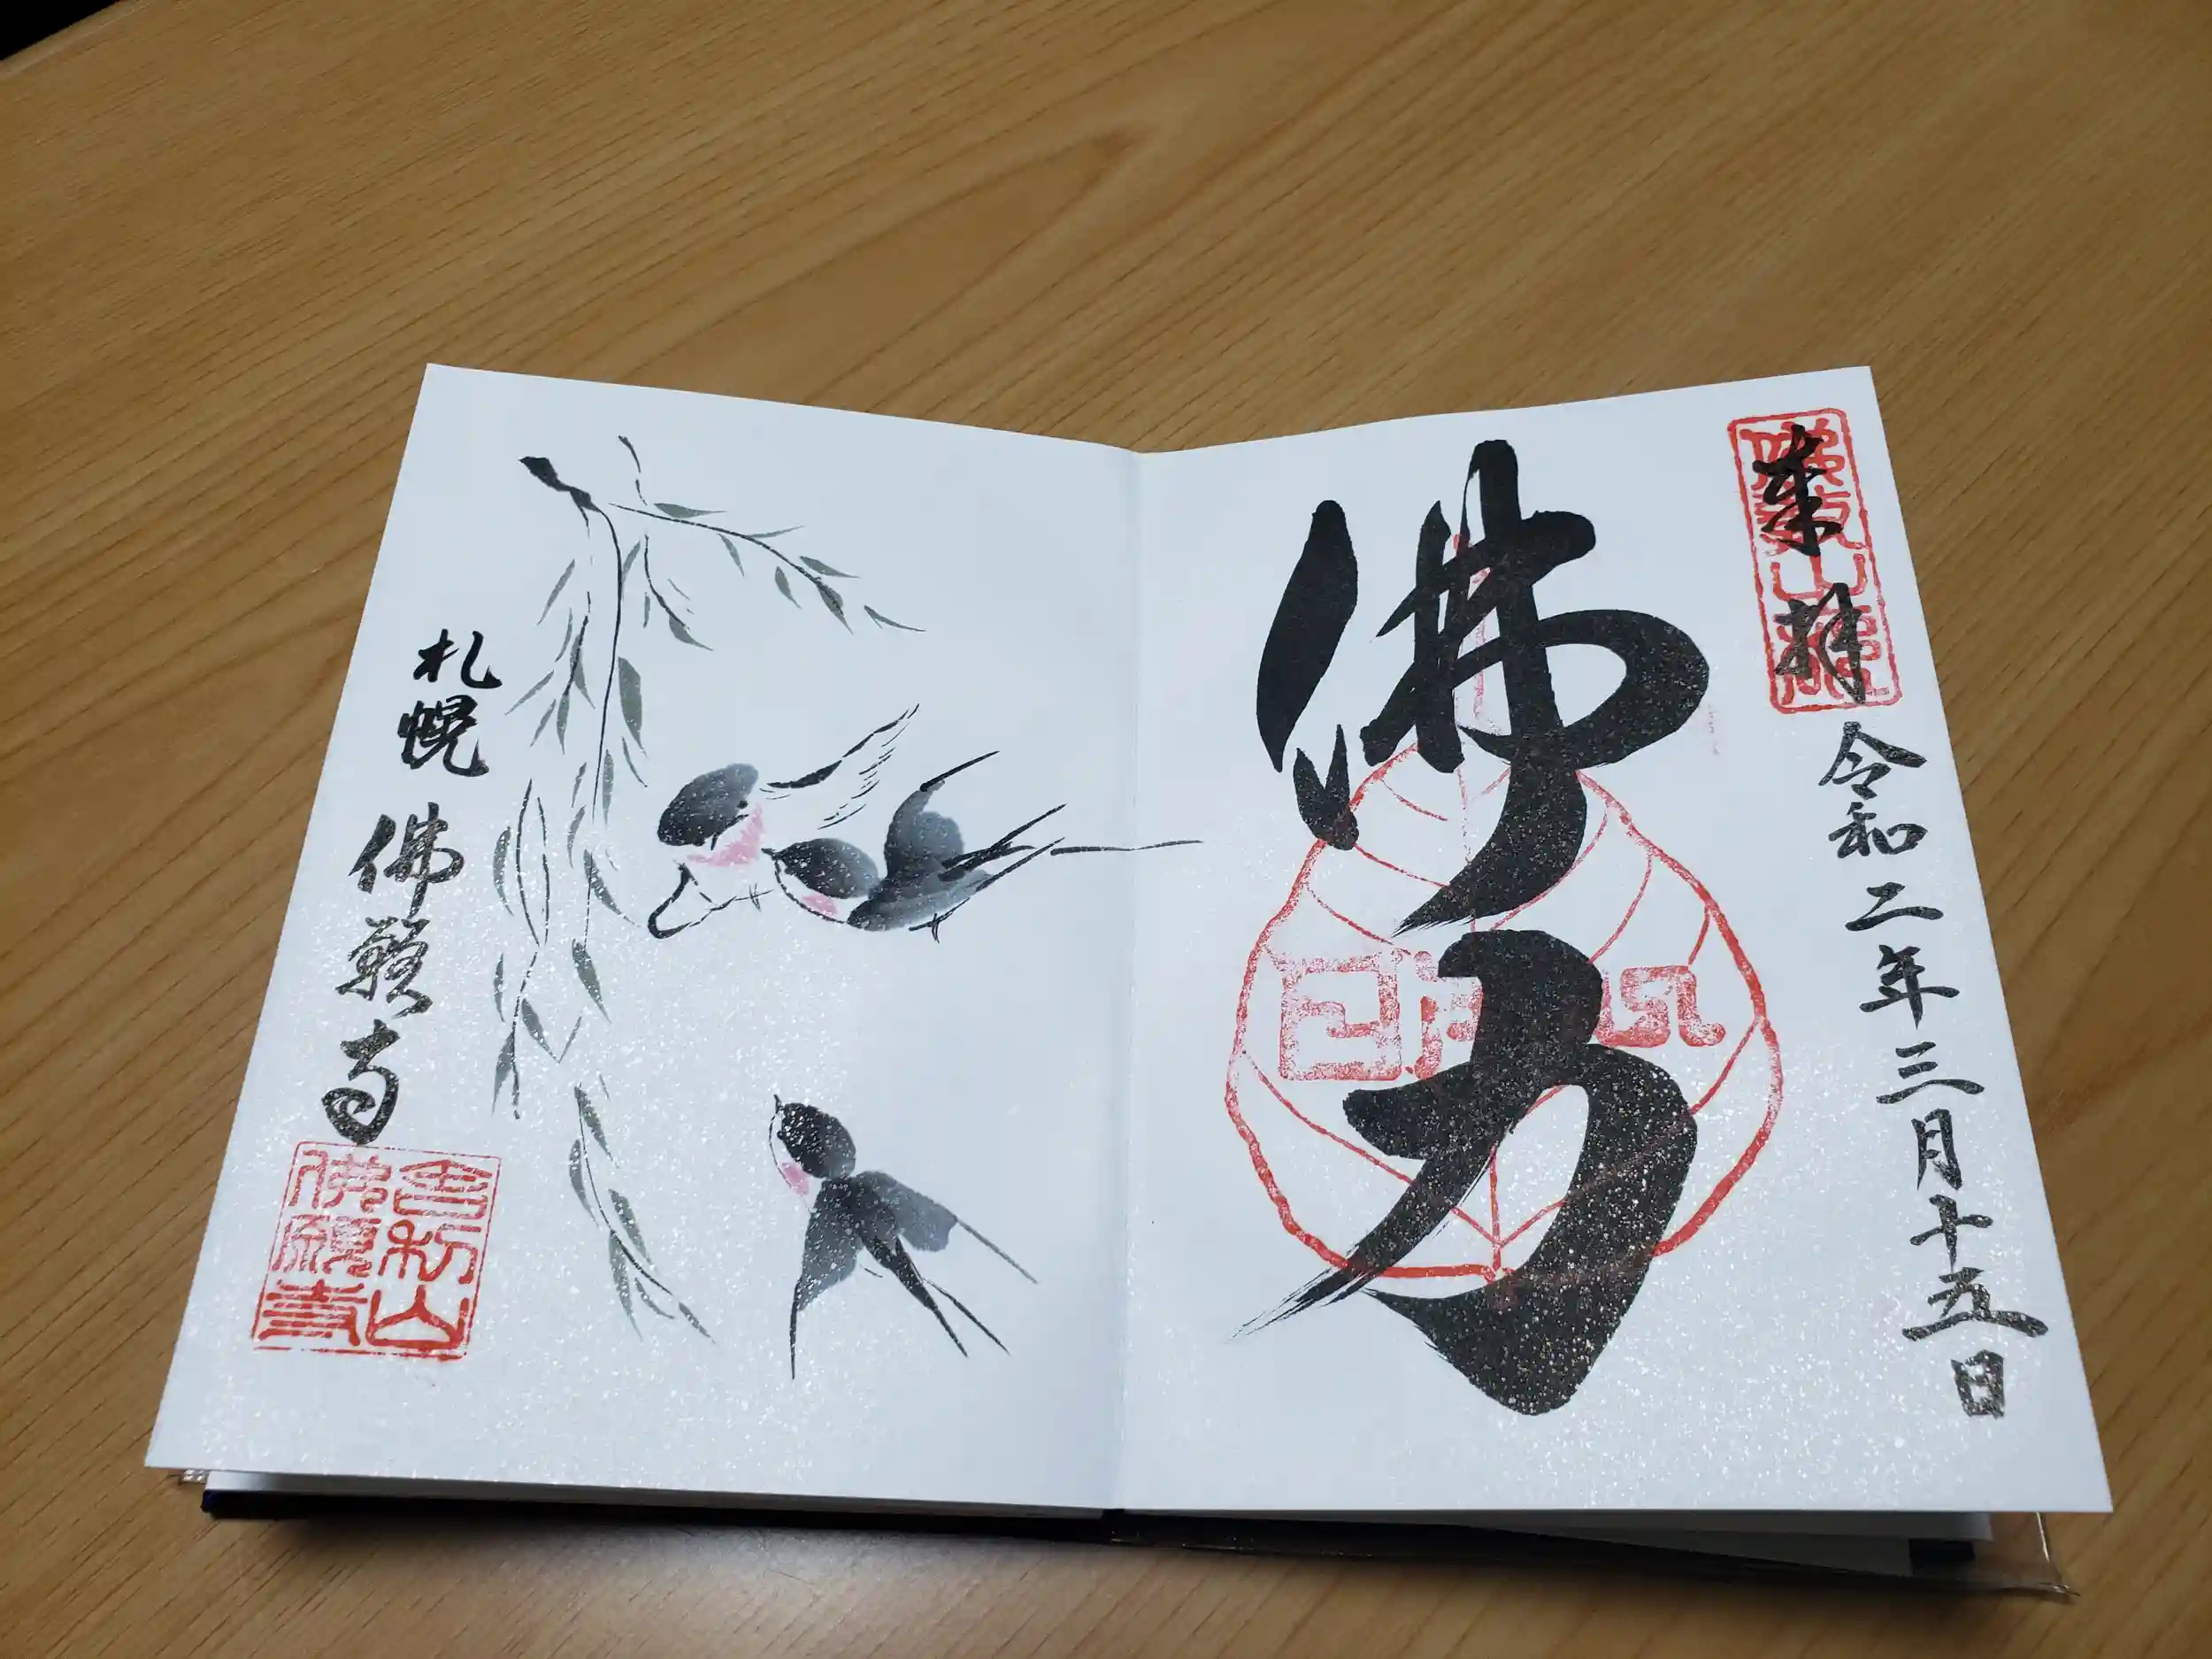 奉拝 令和二年三月十五日
佛力
札幌 佛願寺
舎利山
佛願寺